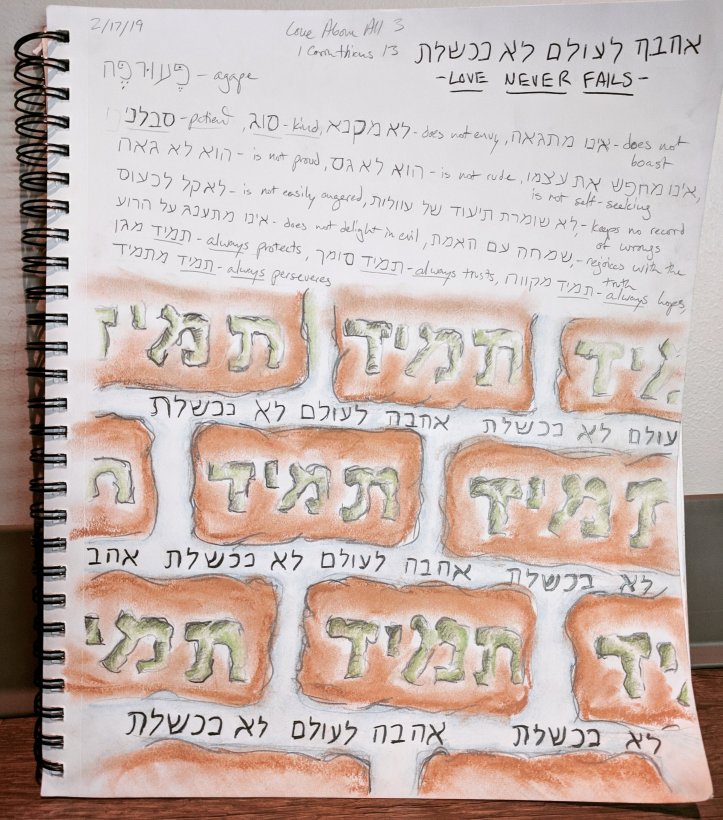 2/17/19
Love Above All 3
1 Corinthians 13
אהבה לעולם לא נכשלת
-LOVE NEVER FAILS-
פָּעוּרפֶּה - agape
סבלני - patient, סוג - kind, לא מקנא - does not envy, אינו מתגאה - does not boast
הוא לא גאה - is not proud, הוא לא גס - is not rude, אינו מחפש את עצמו, is not self-seeking
לא קל לכעוס - is not easily angered, לא שומרת תיעוד של עוולות - keeps no record of wrongs
אינו מתענג על הרוע - does not delight in evil, שמחה עם האמת, - rejoices with the truth
תמיד מגן - always protects, תמיד סומך - always trusts, תמיד מקווה - always hopes,
תמיד מתמיד - always perseveres
תמיז תמיד מיד
אהבה לעולם לא נכשלת עולם לא נכשלת
ת תמיד תמיד
אהב אהבה לעולם לא נכשלת לא נכשלת
תמי תמיד יד
אהבה לעולם לא נכשלת לא נכשלת